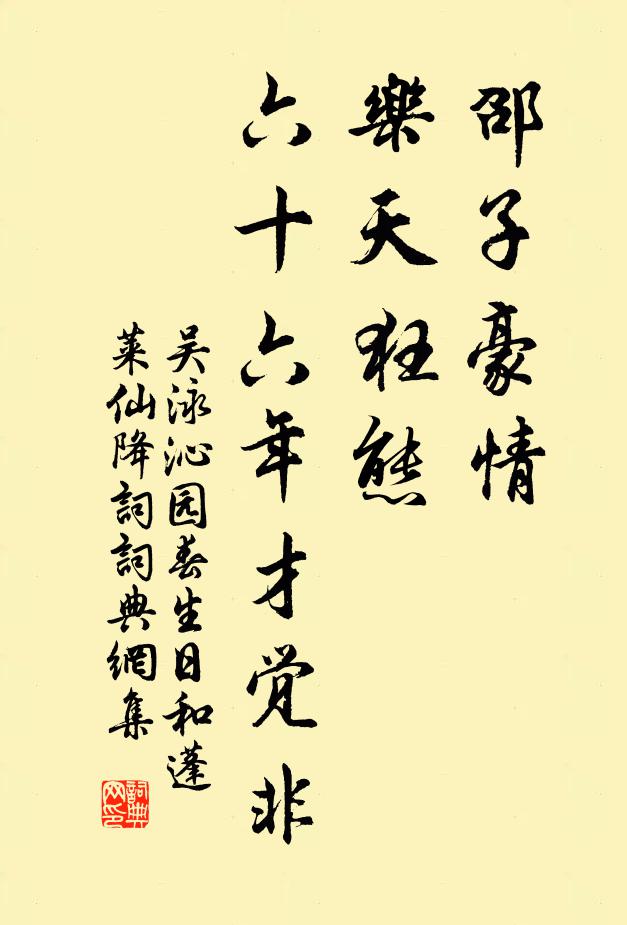 邵子豪情
樂天狂態
六十六年才觉非
吴泳沁园春生日和蓬
莱仙降詞詞典網集
詞典网印